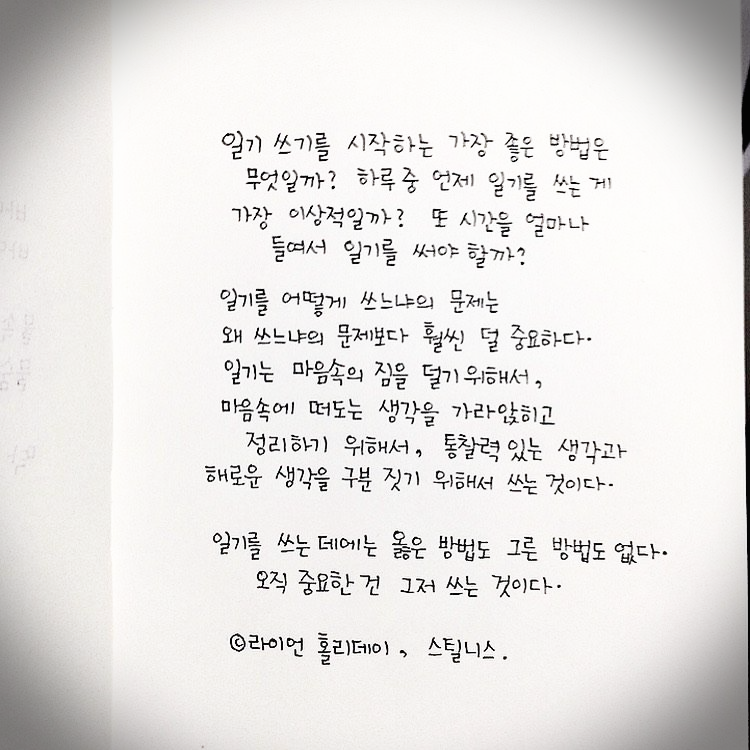 일기 쓰기를 시작하는 가장 좋은 방법은
무엇일까? 하루 중 언제 일기를 쓰는 게
가장 이상적일까? 또 시간을 얼마나
들여서 일기를 써야 할까?
일기를 어떻게 쓰느냐의 문제는
왜 쓰느냐의 문제보다 훨씬 덜 중요하다.
일기는 마음속의 짐을 덜기 위해서,
마음속에 떠도는 생각을 가라앉히고
정리하기 위해서, 통찰력 있는 생각과
해로운 생각을 구분 짓기 위해서 쓰는 것이다.
일기를 쓰는 데에는 옳은 방법도 그른 방법도 없다.
오직 중요한 건 그저 쓰는 것이다.
©라이언 홀리데이, 스틸니스.